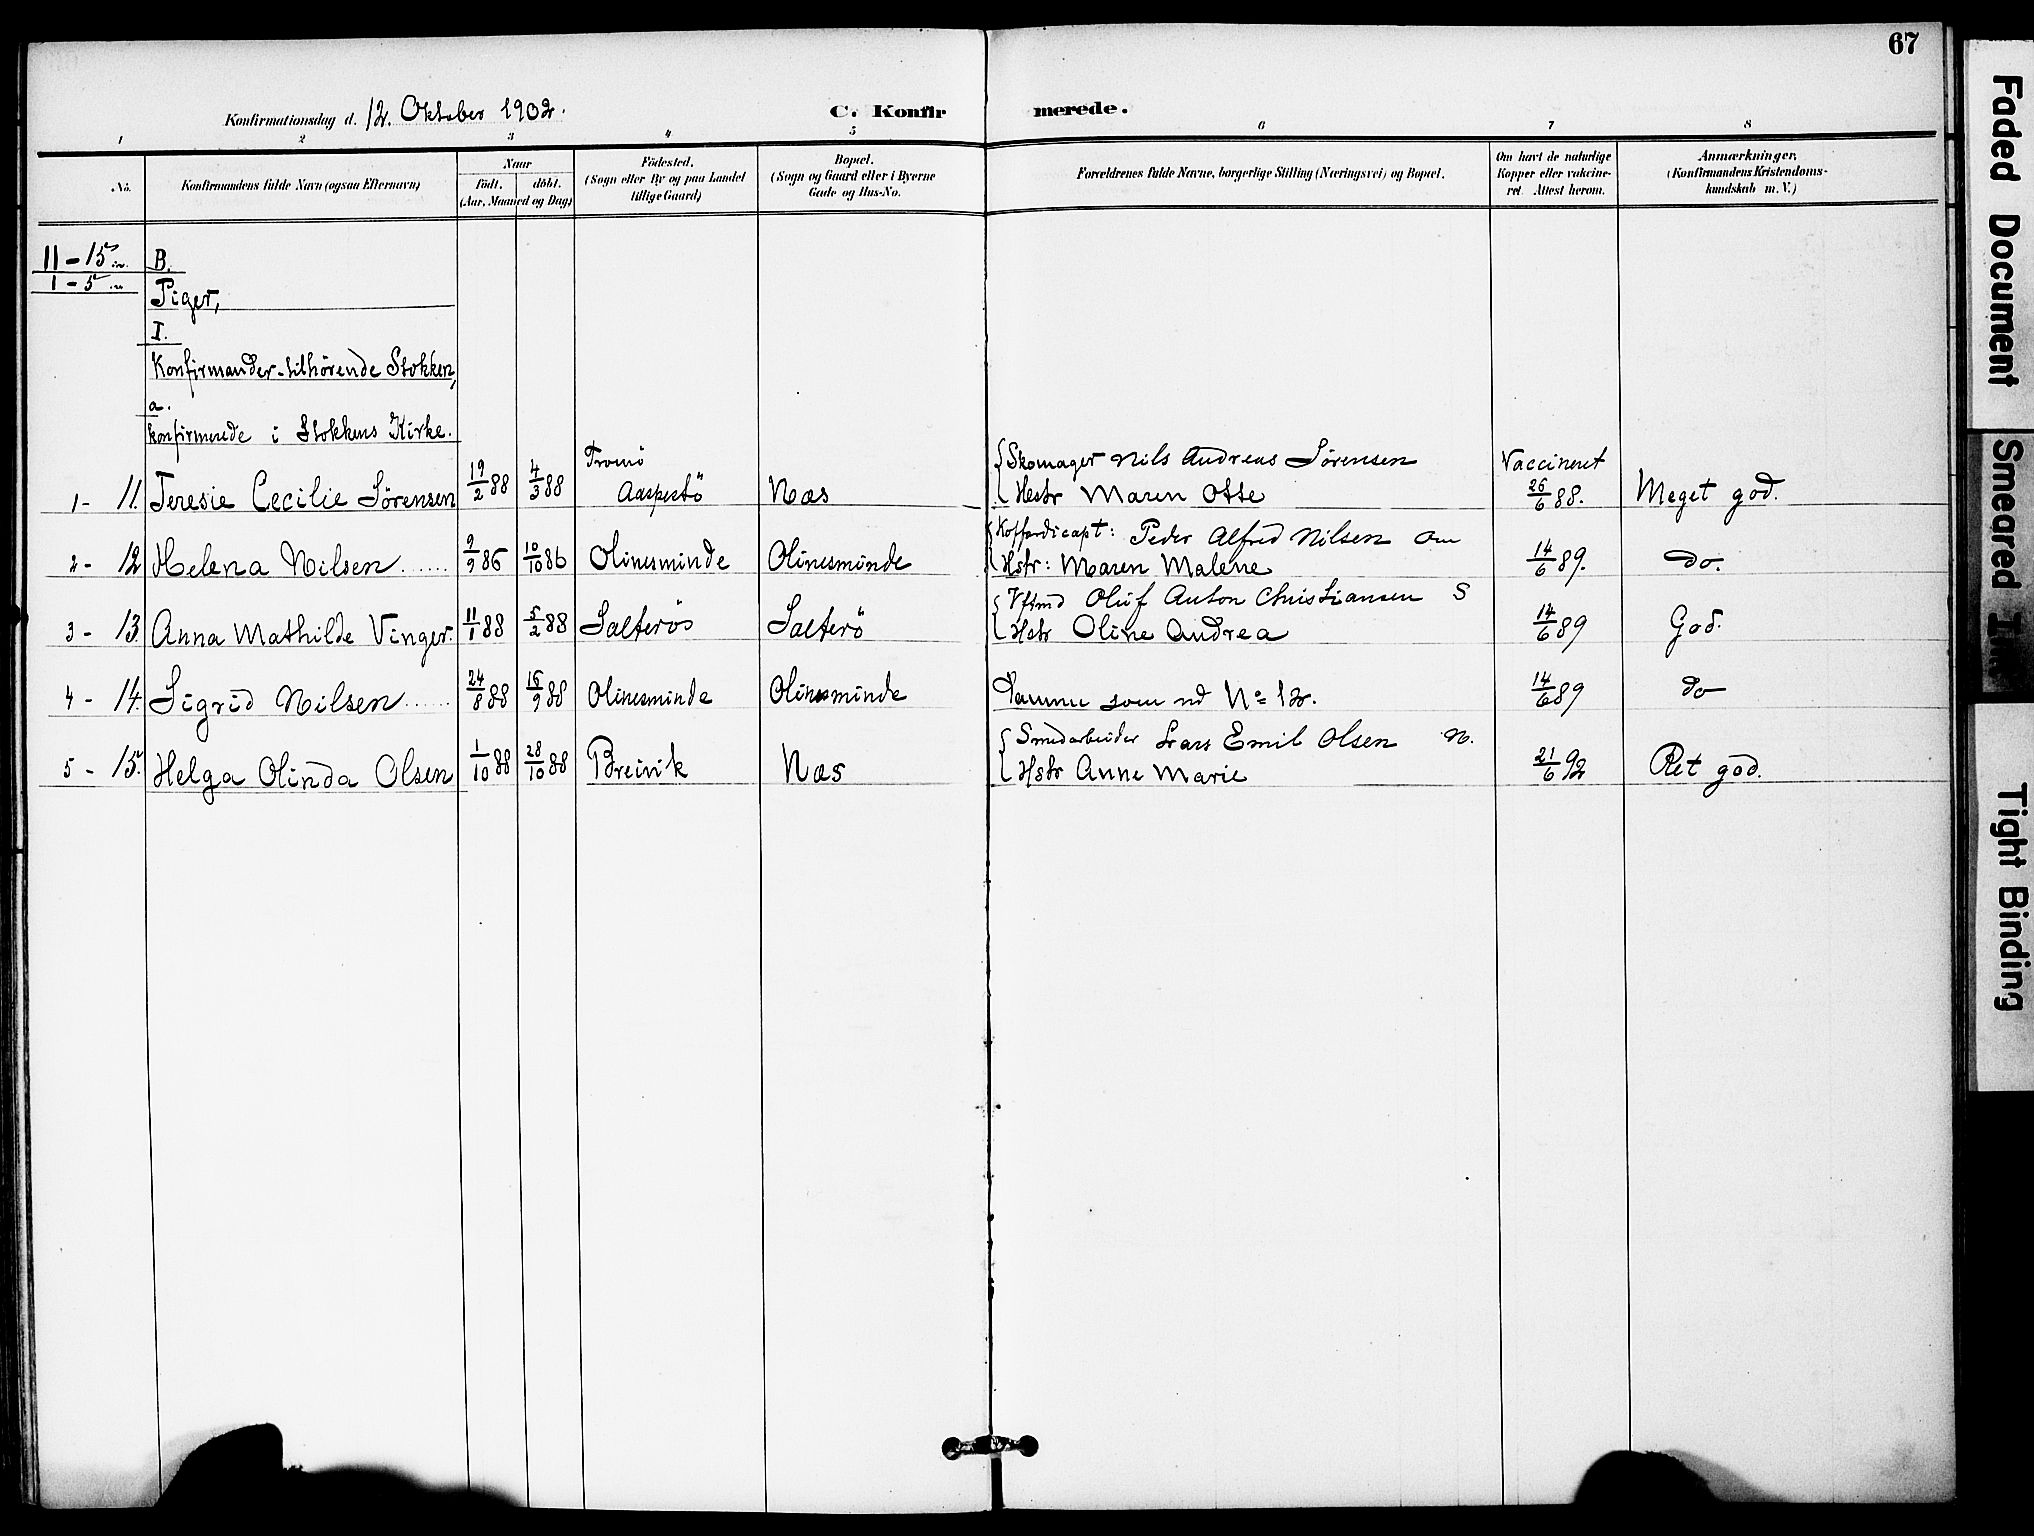 67
Konfirmationsdag d. 12. Oktober 1902.
C. Konfir merede.
1 2 3 4 5 6 7 8
No.
Konfirmandens fulde Navn (ogsaa Efternavn)
Naar
födt. döbt.
(Aar, Maaned og Dag)
Födested.
(Sogn eller By og paa Landet
tillige Gaard)
Bopæl.
(Sogn og Gaard eller i Byerne
Gade og Hus-No.
Forældrenes fulde Navne, borgerlige Stilling (Næringsvei) og Bopæl.
Om havt de naturlige
Kopper eller vakcine-
ret. Attest herom.
Anmærkninger.
(Konfirmandens Kristendoms-
kundskab m. V.)
11 - 15 B.
1 - 5
Piger,
I.
Konfirmander tilhørende Stokken,
a.
konfirmerede i Stokkens Kirke.
1 - 11. Teresie Cecilie Sörensen 19/2 88 4/3 88 Tromö Næs Skomager Nils Andreas Sörensen Vaccineret 26/6 88. Meget god.
Hstr Maren Otte
2 - 12 Helena Nilsen 9/9 86 10/10 86 Olinesminde Olinesminde Koffardicapt: Peder Alfred Nilsen Om 14/6 89. do.
Hstr: Maren Malene
3 - 13. Anna Mathilde Vinger. 11/1 88 5/2 88 Salterös Salterö Oluf Anton Christiansen S 14/6 89 God.
Hstr Oline Andrea
4 - 14. Sigrid Nilsen 24/8 88 16/9 88 Olinesminde Olinesminde Samme som ved No 12. 14/6 89 do
5 - 15. Helga Olinda Olsen 1/10 88 28/10 88 Breivik Næs Smedarbeider Lars Emil Olsen N. 21/6 92 Ret god.
Hstr Anne Marie
Faded Document
Smeared Ink
Tight Binding